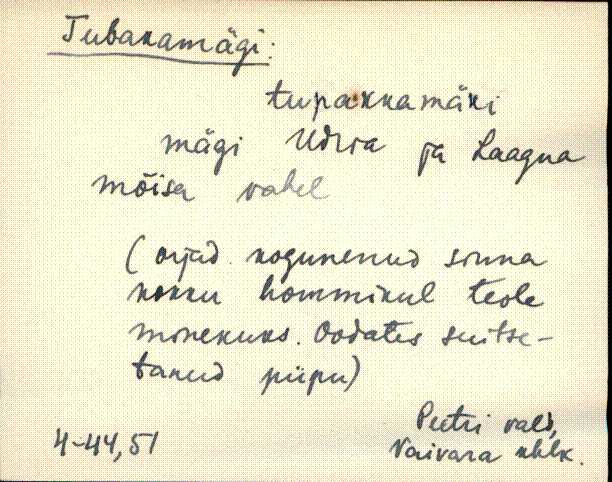 Tubakamägi:
tupakkamäki
mägi Udria ja Laagna
mõisa vahel
(orjad kogunenud sinna
kokku hommikul teole
minekuks. Oodates suitse-
tanud piipu)
Peetri vald,
4-44,51
Vaivara khlk.